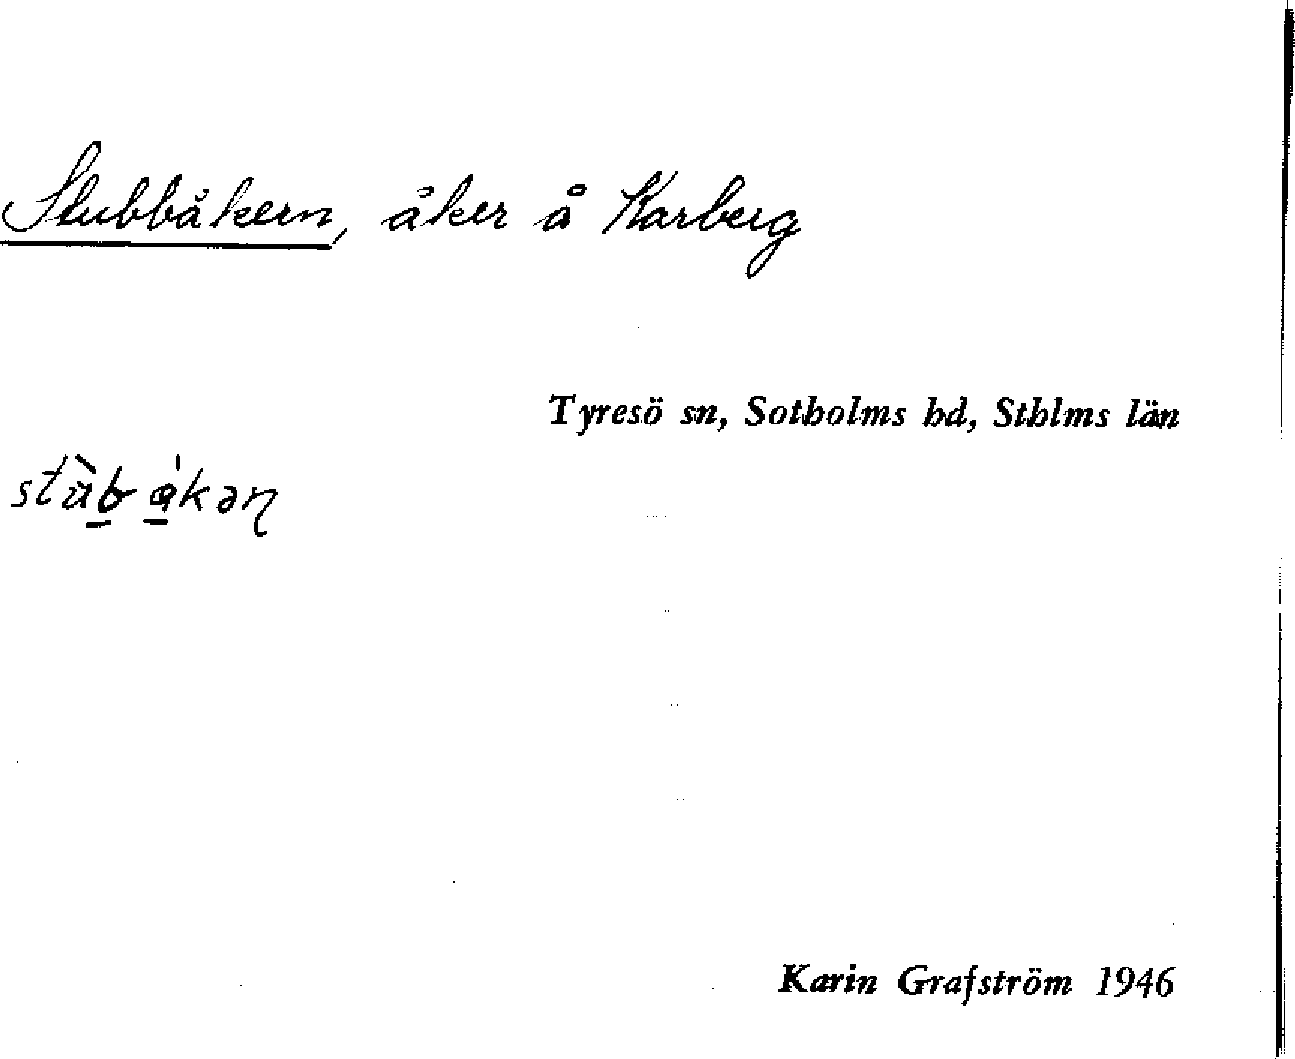 Stubbåkern, åker å Karberg
Tyresö sn, Sotholms hd, Sthlms län
Karin Grafström 1946